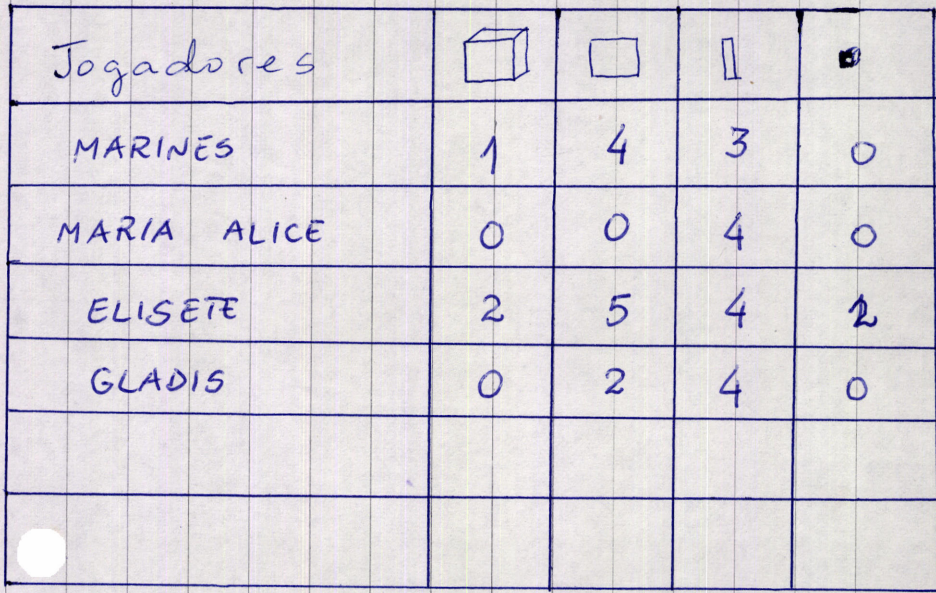 Jogadores
MARINES 1 4 3 0
MARIA ALICE 0 0 4 0
ELISETE 2 5 4 2
GLADIS 0 2 4 0